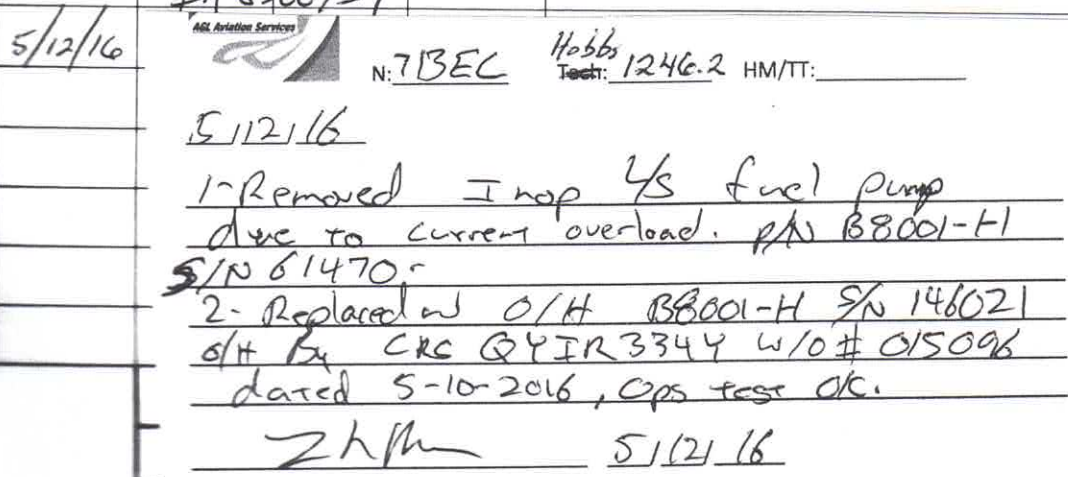 5/12/16
AGL Aviation Services
N: 7BEC Hobbs Tech: 1246.2 HM/TT:
5/12/16
1-Removed Inop L/S fuel pump
due to current overload. P/N B8001-H
S/N 61470.-
2- Replaced w O/H B8001-H S/N 146021
O/H By CRS QYIR334Y W/O# 015096
dated 5-10-2016, Ops test O/K.
5/12/16